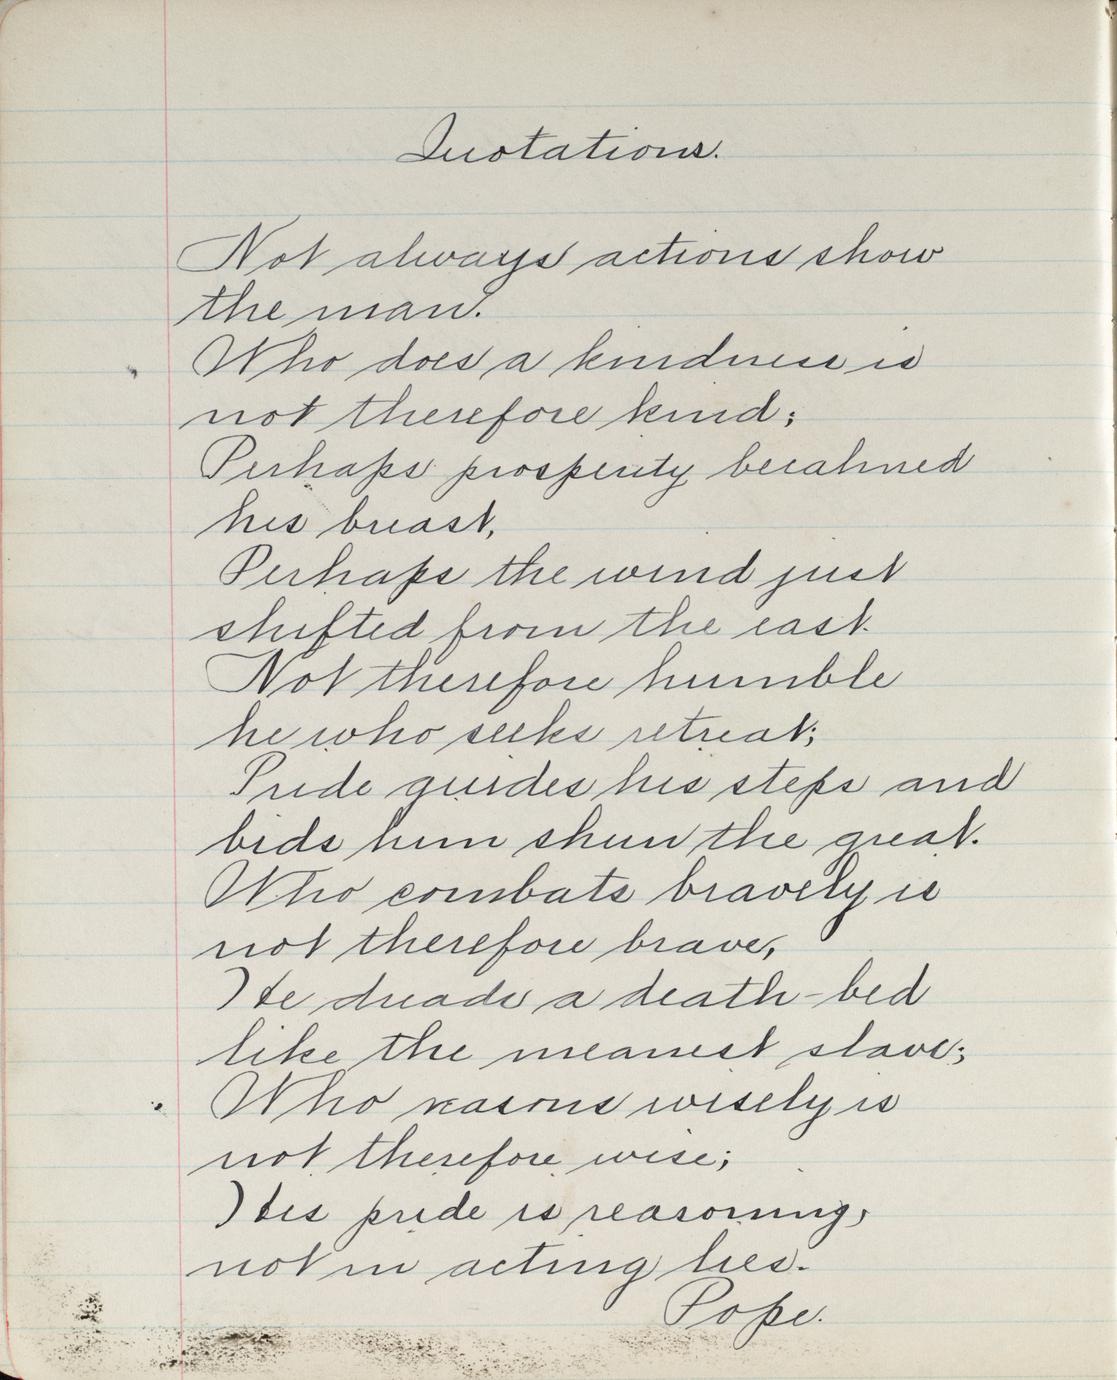 Quotations.
Not always actions show
the man.
Who does a kindness is
not therefore kind;
Perhaps prosperity becalmed
his breast,
Perhaps the wind just
shifted from the east.
Not therefore humble
he who seeks retreat;
Pride guides his steps and
bids him shun the great.
Who combats bravely is
not therefore brave,
He dreads a death-bed
like the meanest slave;
Who reasons wisely is
not therefore wise;
His pride is reasoning,
not in acting lies.
Pope.